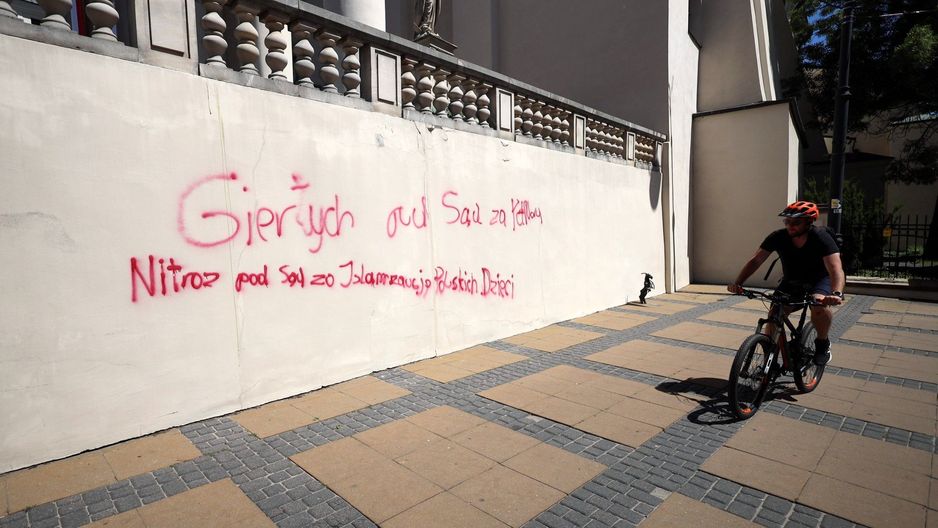 Giertych pod Sąd za
Nitroz pod Sąd zo Islamizację Polskich Dzieci